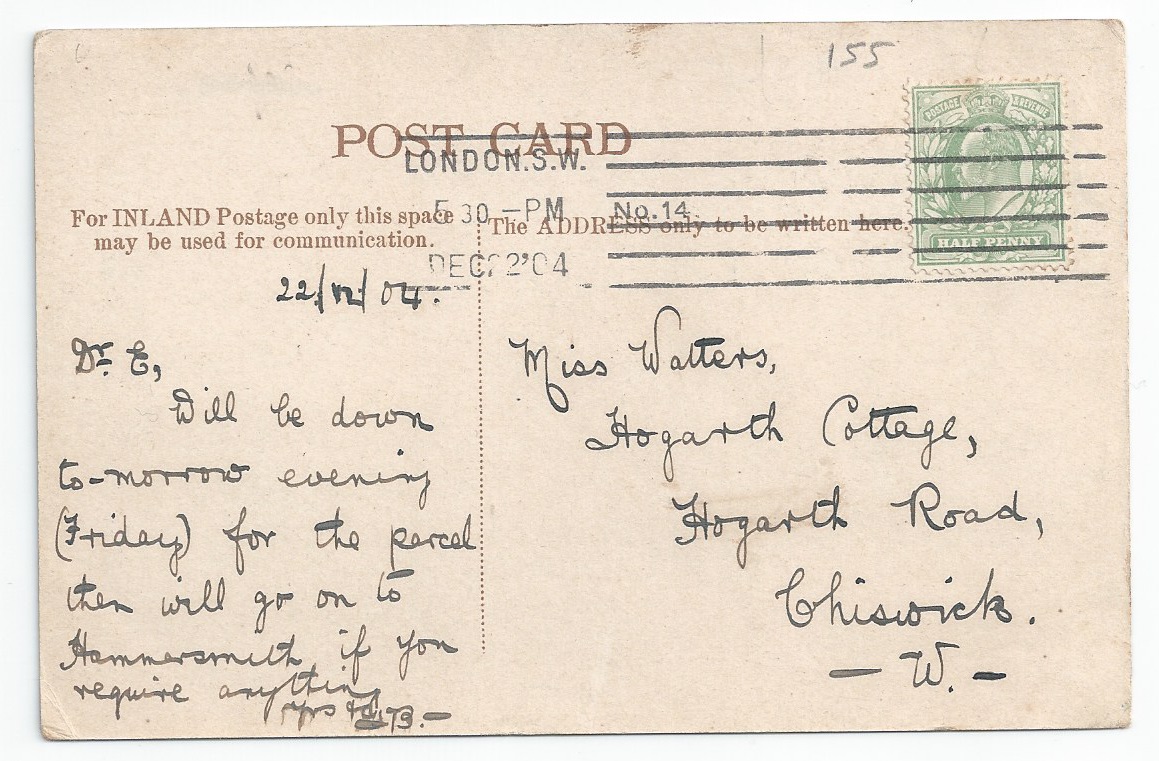 155
POST CARD
LONDON.S.W.
5 30 - PM No. 14
DEC 22 '04
POSTAGE & REVENUE
HALF PENNY
For INLAND Postage only this space
may be used for communication.
The ADDRESS only to be written here.
22/12/04.
Dr. E,
Will be down
to-morrow evening
(Friday) for the parcel
then will go on to
Hammersmith if you
require anything
Miss Walters,
Hogarth Cottage,
Hogarth Road,
Chiswick.
— W. —